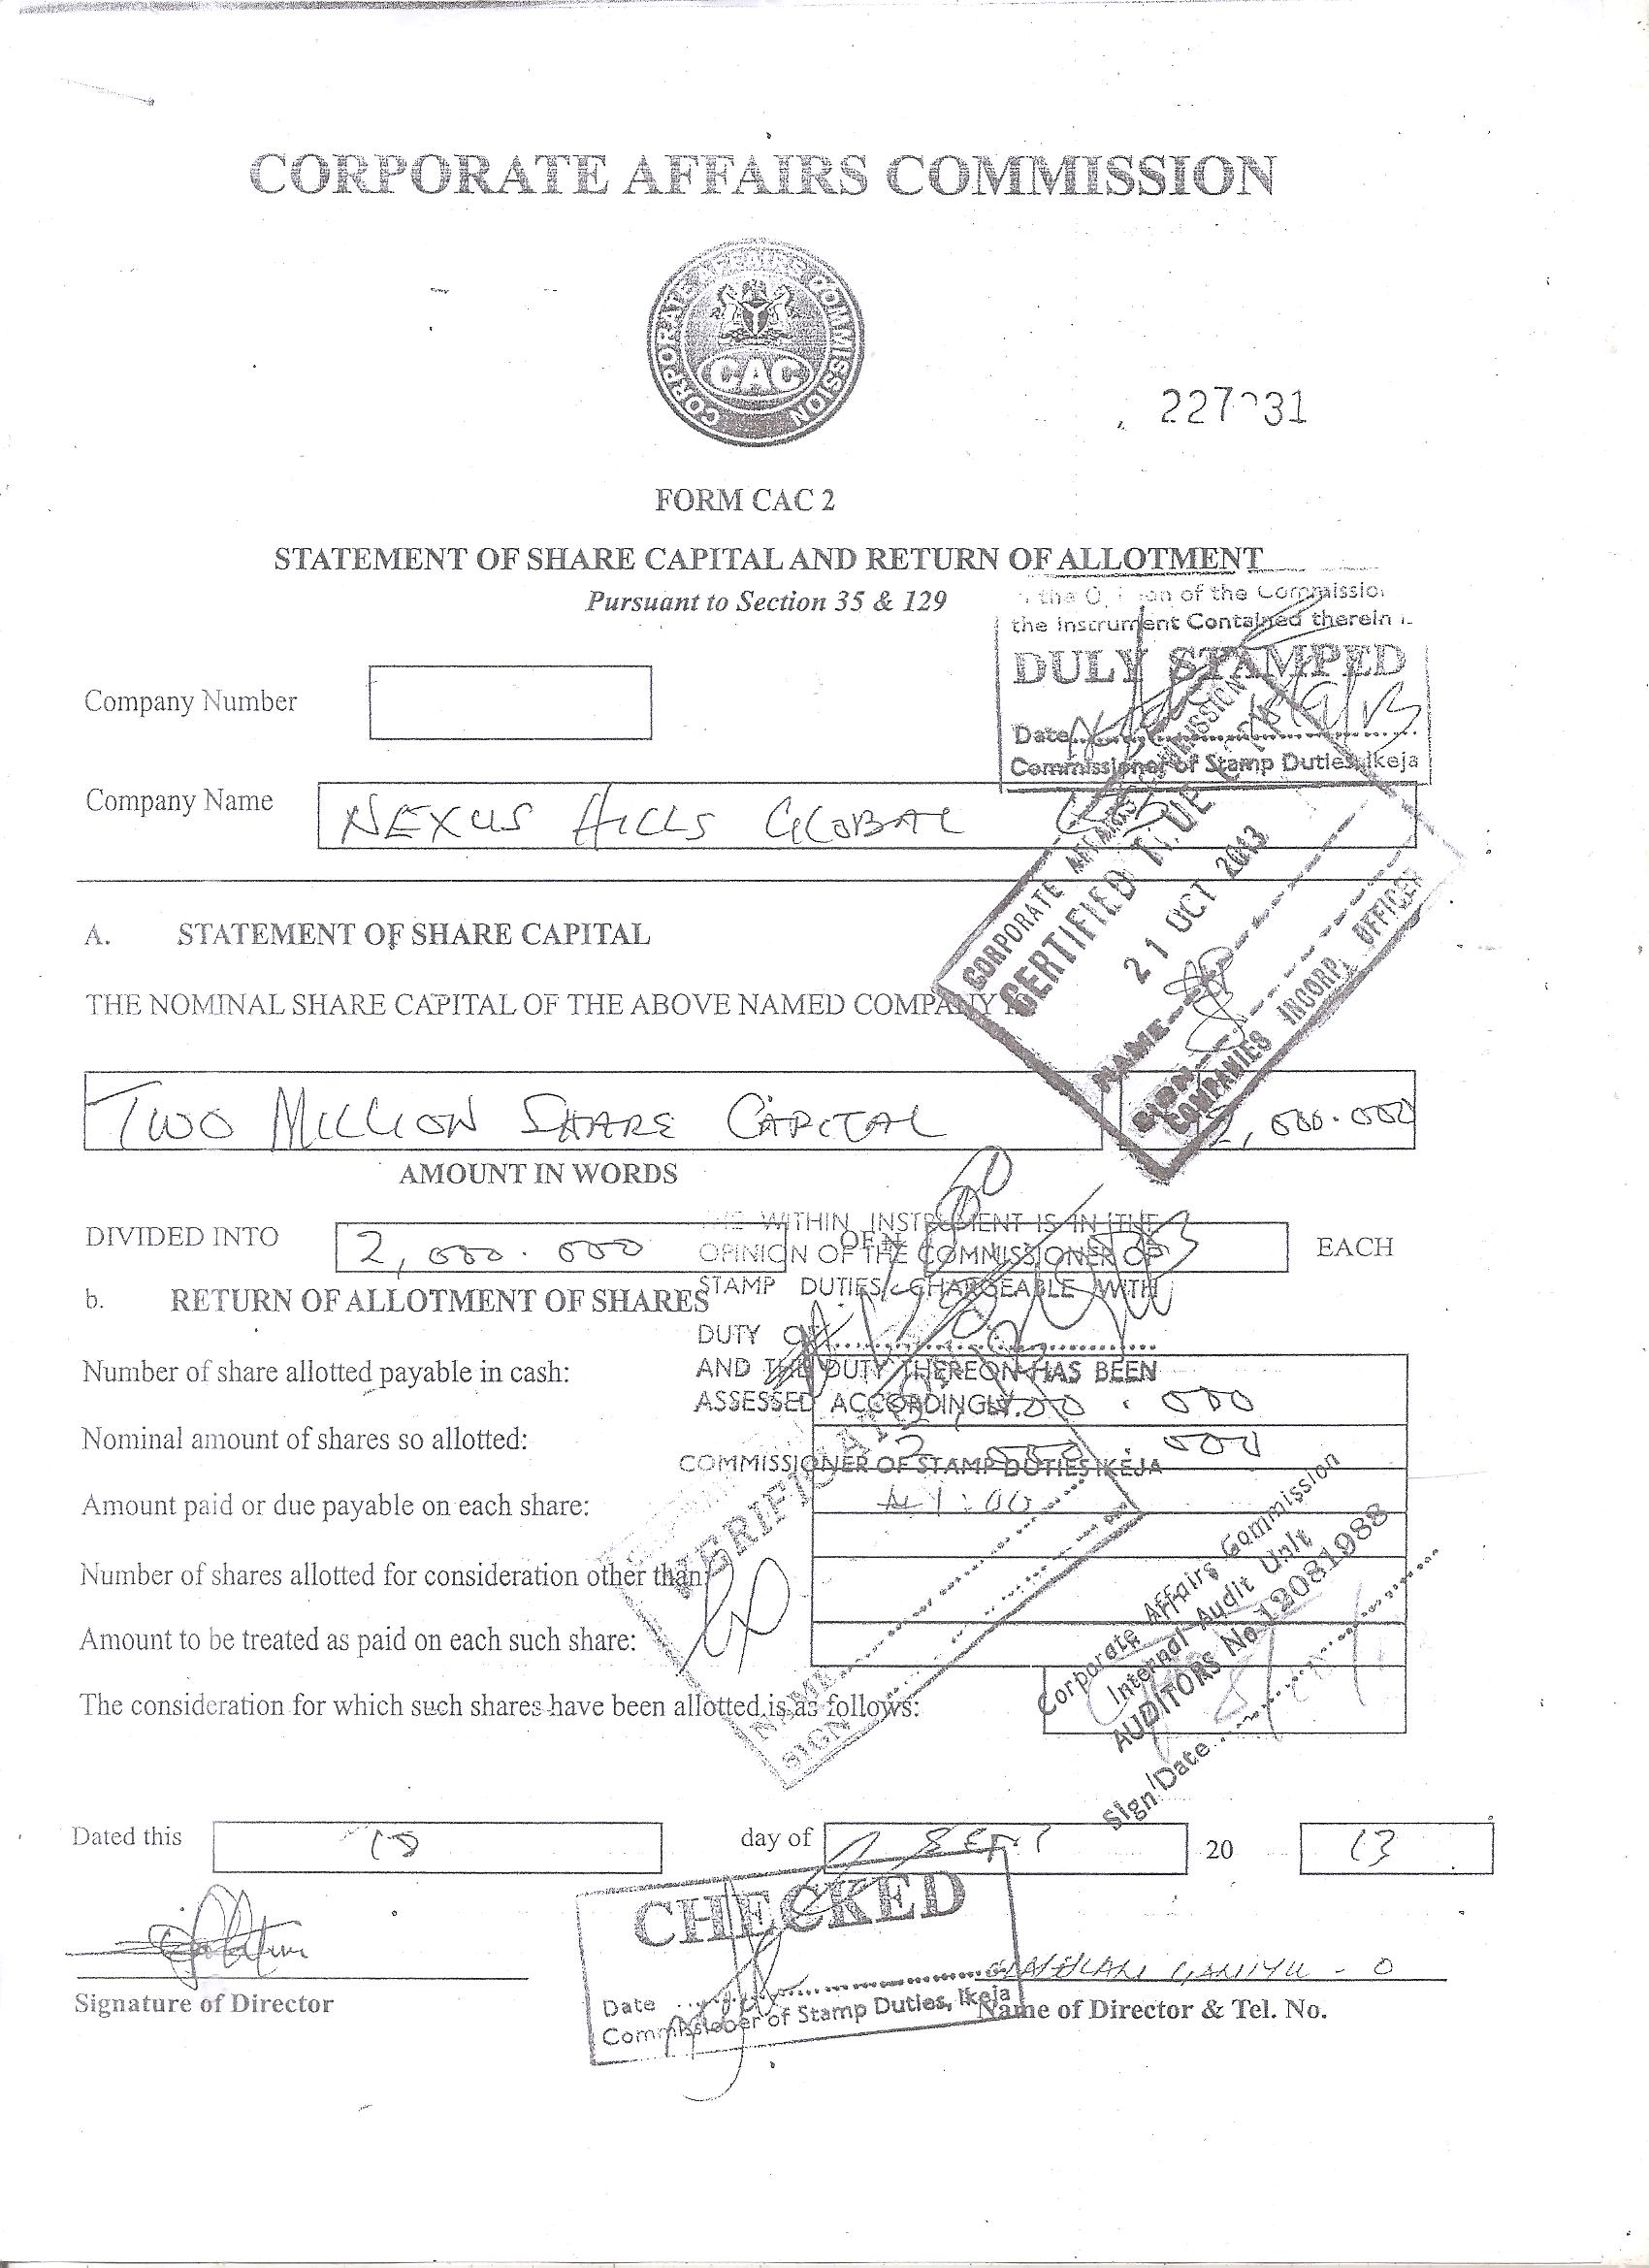 CORPORATE AFFAIRS COMMISSION
CORPORATE AFFAIRS COMMISSION
CAC
FORM CAC 2
STATEMENT OF SHARE CAPITAL AND RETURN OF ALLOTMENT
Pursuant to Section 35 & 129
of the
the Instrument Contained therein
DULY STAMPED
Date
Commissioner of Stamp Duties, Ikeja
Company Number
Company Name NEXUS HILLS GLOBAL
CORPORATE AFFAIRS COMMISSION
CERTIFIED TRUE
21 OCT 2013
NAME
SIGN
COMPANIES INCORP. OFFICER
A. STATEMENT OF SHARE CAPITAL
THE NOMINAL SHARE CAPITAL OF THE ABOVE NAMED COMPANY
TWO MILLION SHARE CAPITAL 2,000.000
AMOUNT IN WORDS
DIVIDED INTO 2,000.000 OF N EACH
WITHIN INSTRUMENT IS IN THE
OPINION OF THE COMMISSIONER OF
STAMP DUTIES CHARGEABLE WITH
DUTY OF
AND THE DUTY THEREON HAS BEEN
ASSESSED ACCORDINGLY.
COMMISSIONER OF STAMP DUTIES IKEJA
b. RETURN OF ALLOTMENT OF SHARES
Number of share allotted payable in cash:
Nominal amount of shares so allotted: 2,000.000
Amount paid or due payable on each share: N1:00
Number of shares allotted for consideration other than:
Amount to be treated as paid on each such share:
The consideration for which such shares have been allotted is as follows:
NAME
SIGN
Corporate Affairs Commission
Internal Audit Unit
AUDITORS No 12081988
Sign/Date
Dated this day of SEPT 20 13
CHECKED
Date
Commissioner of Stamp Duties, Ikeja
Signature of Director
Name of Director & Tel. No.